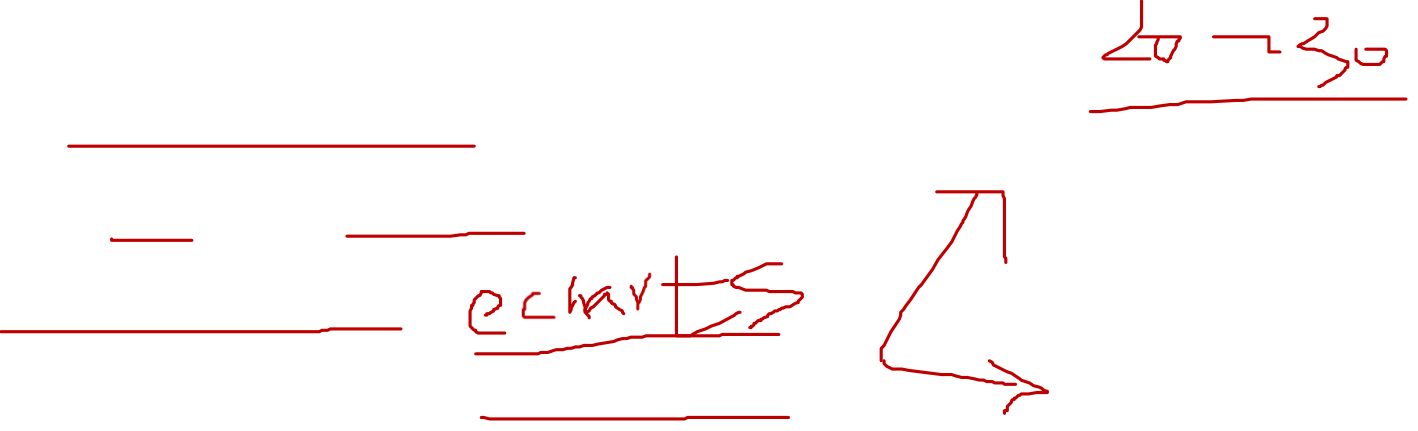 20 - 30
echarts